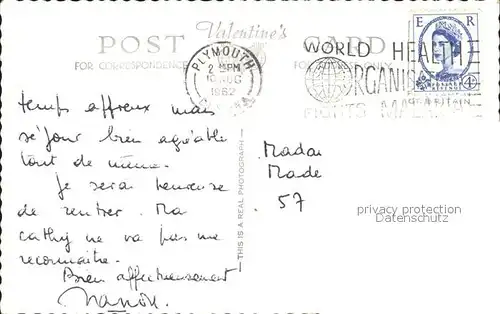 Valentine's
POST CARD
FOR CORRESPONDENCE FOR ONLY
PLYMOUTH
2 PM
AUG
1962
WORLD HEALTH
ORGANIS
FIGHTS MALARIA
E R
4D
temps affreux mais
séjour bien agréable
tout de même.
Je serai heureuse
de rentrer. Ma
Cathy ne va pas me
reconnaître.
Bien affectueusement
Manon.
THIS IS A REAL PHOTOGRAPH
Madai
Made
57
privacy protection
Datenschutz